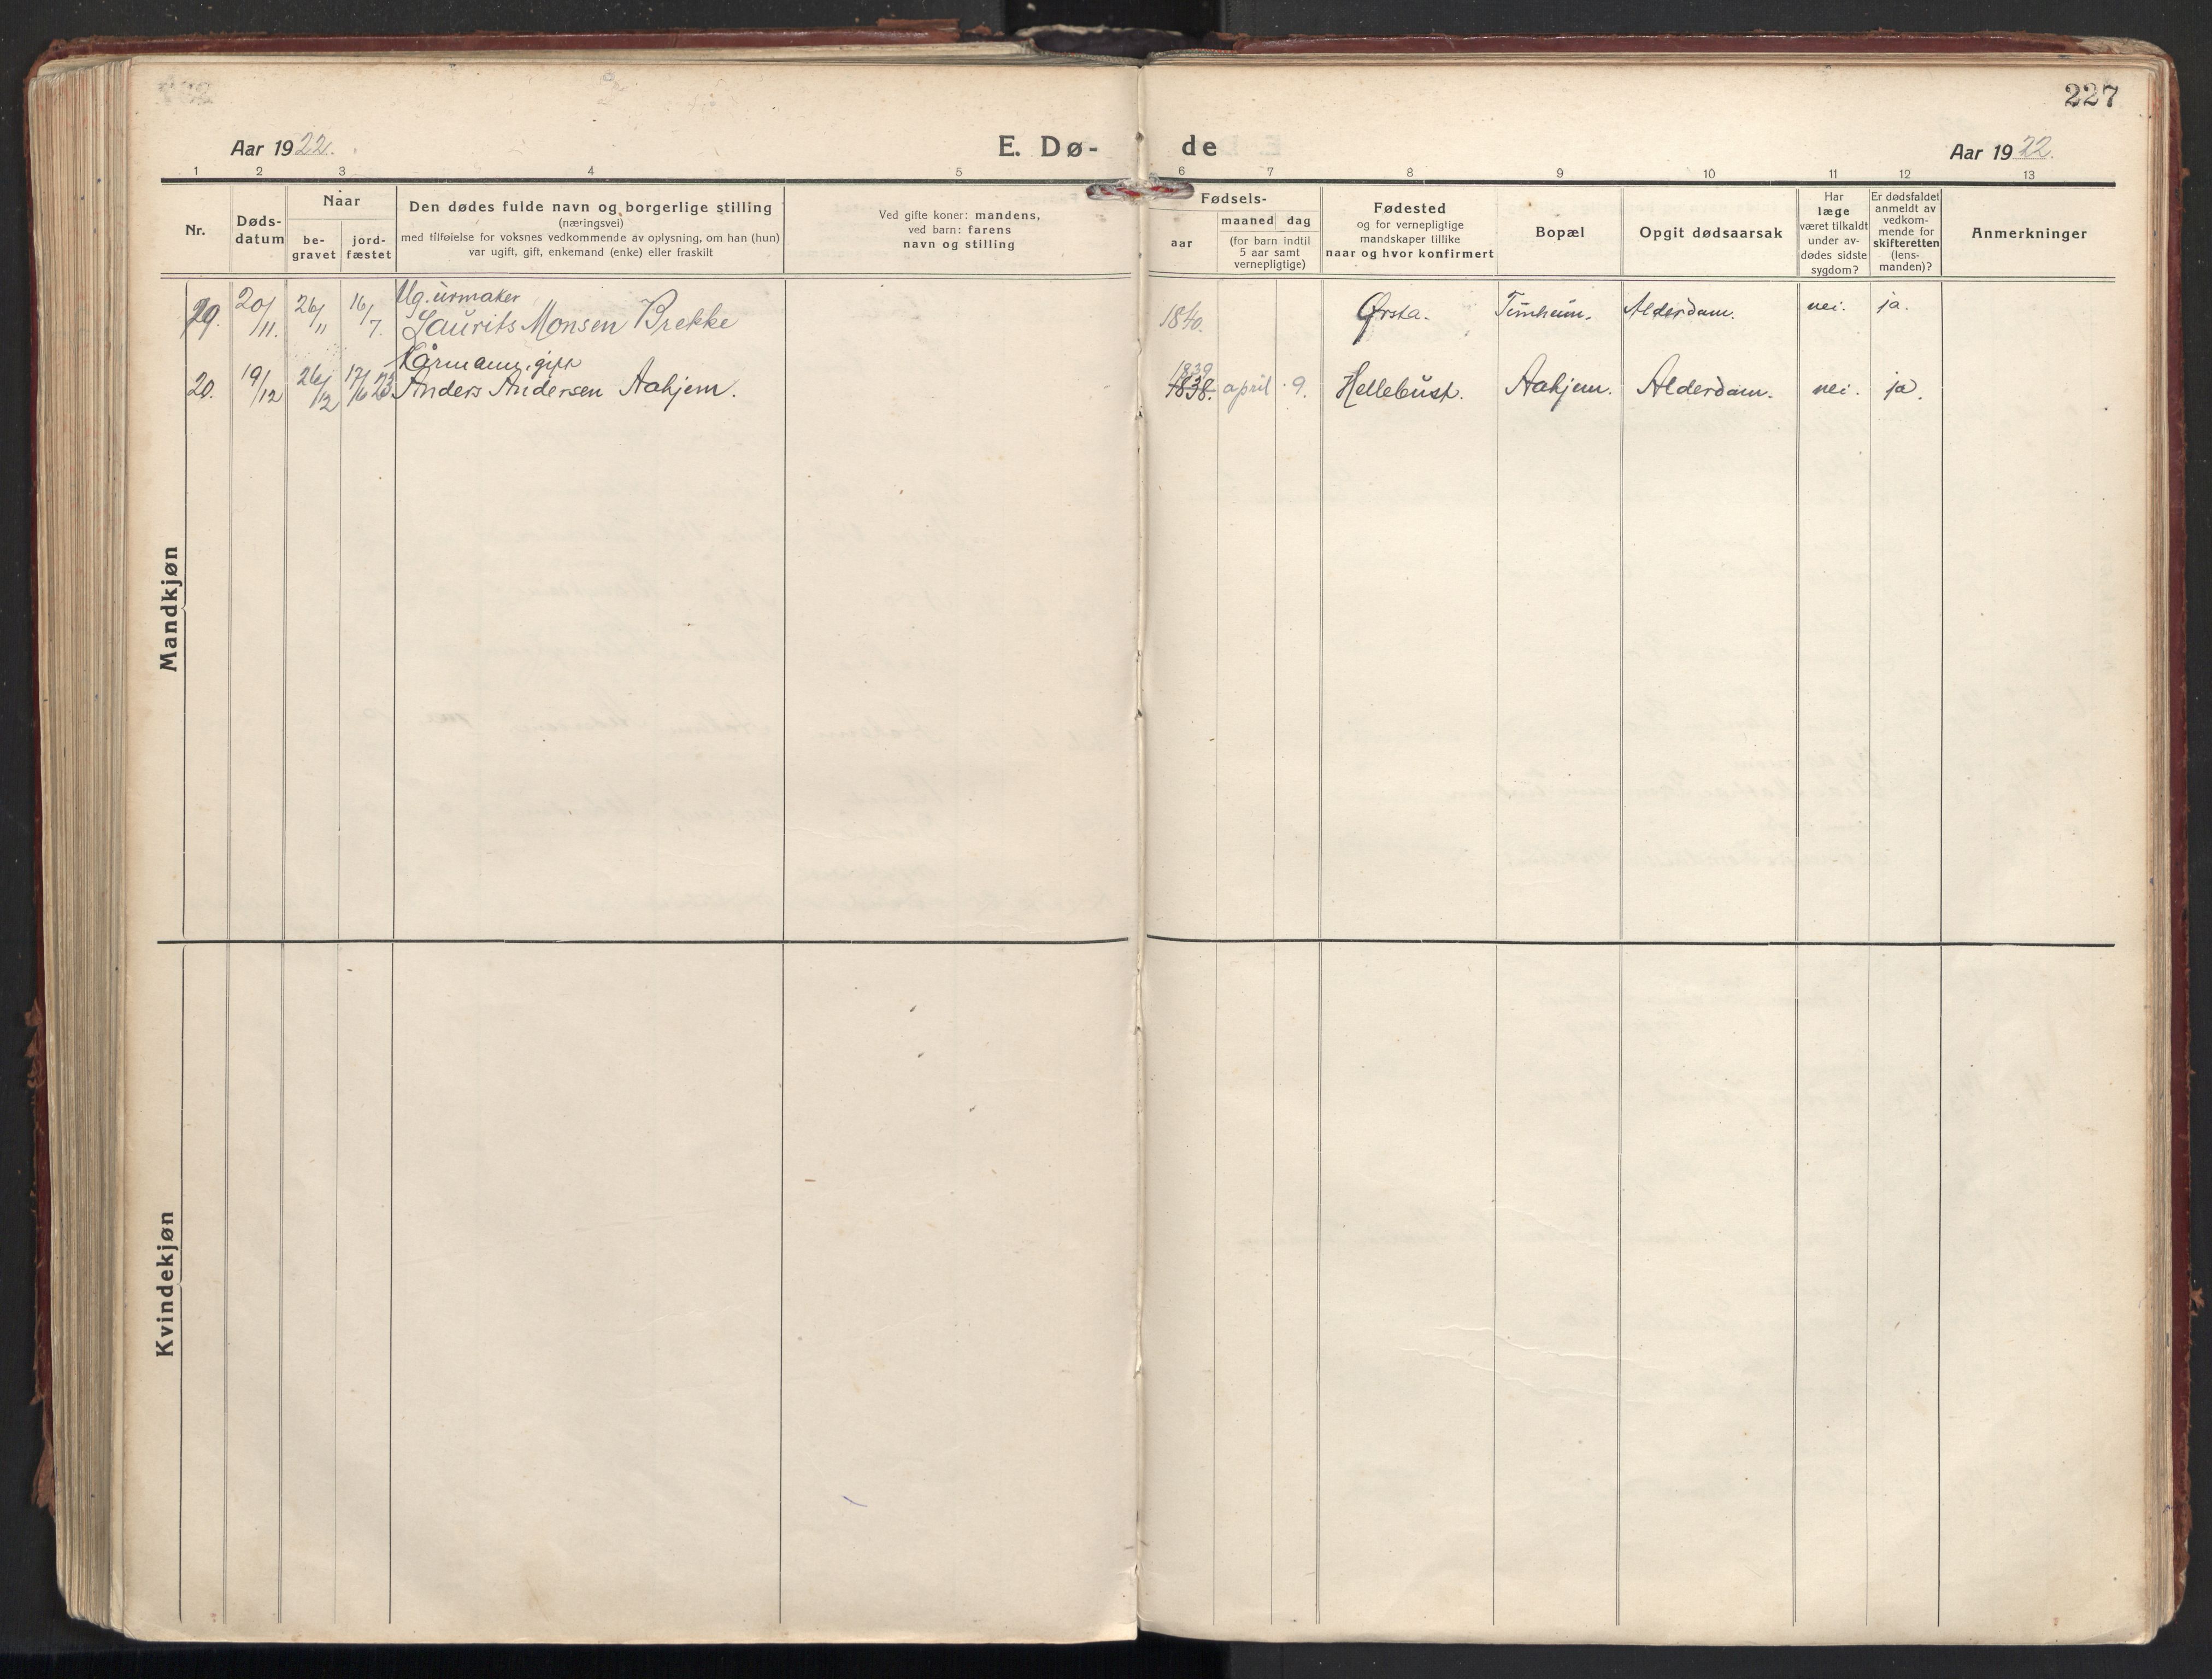 227
Aar 1922.
E. Dø-
de
Aar 1922.
1 2 3 4 5 6 7 8 9 10 11 12 13
Nr.
Døds-
datum
Naar
be-
gravet
jord-
fæstet
Den dødes fulde navn og borgerlige stilling
(næringsvei)
med tilføielse for voksnes vedkommende av oplysning, om han (hun)
var ugift, gift, enkemand (enke) eller fraskilt
Ved gifte koner: mandens,
ved barn: farens
navn og stilling
Fødsels-
aar
maaned dag
(for barn indtil
5 aar samt
vernepligtige)
Fødested
og for vernepligtige
mandskaper tillike
naar og hvor konfirmert
Bopæl
Opgit dødsaarsak
Har
læge
været tilkaldt
under av-
dødes sidste
sygdom?
Er dødsfaldet
anmeldt av
vedkom-
mende for
skifteretten
(lens-
manden)?
Anmerkninger
Mandkjøn
Ug. urmaker
19. 20/11. 26/11 16/7. Laurits Monsen Brekke 1840. Ørsta. Timheim. Alderdom. nei. ja.
Kårmann, gift
1839
20. 19/12 26/12 17/6 23 Anders Andersen Aahjem. 1838. april 9. Hellebust. Aahjem. Alderdom. nei. ja.
Kvindekjøn